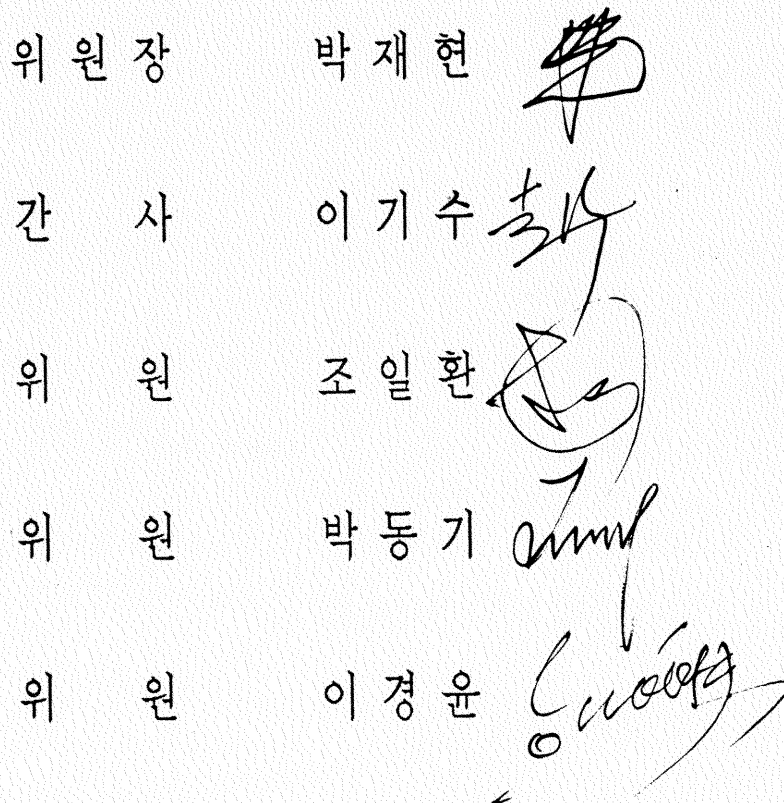 위 원 장 박 재 현
간 사 이 기 수
위 원 조 일 환
위 원 박 동 기
위 원 이 경 윤